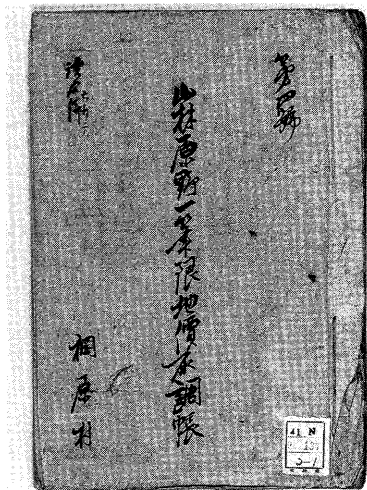 第四號
山林原野一筆限地價取調帳
桐原村
41 N
5-1